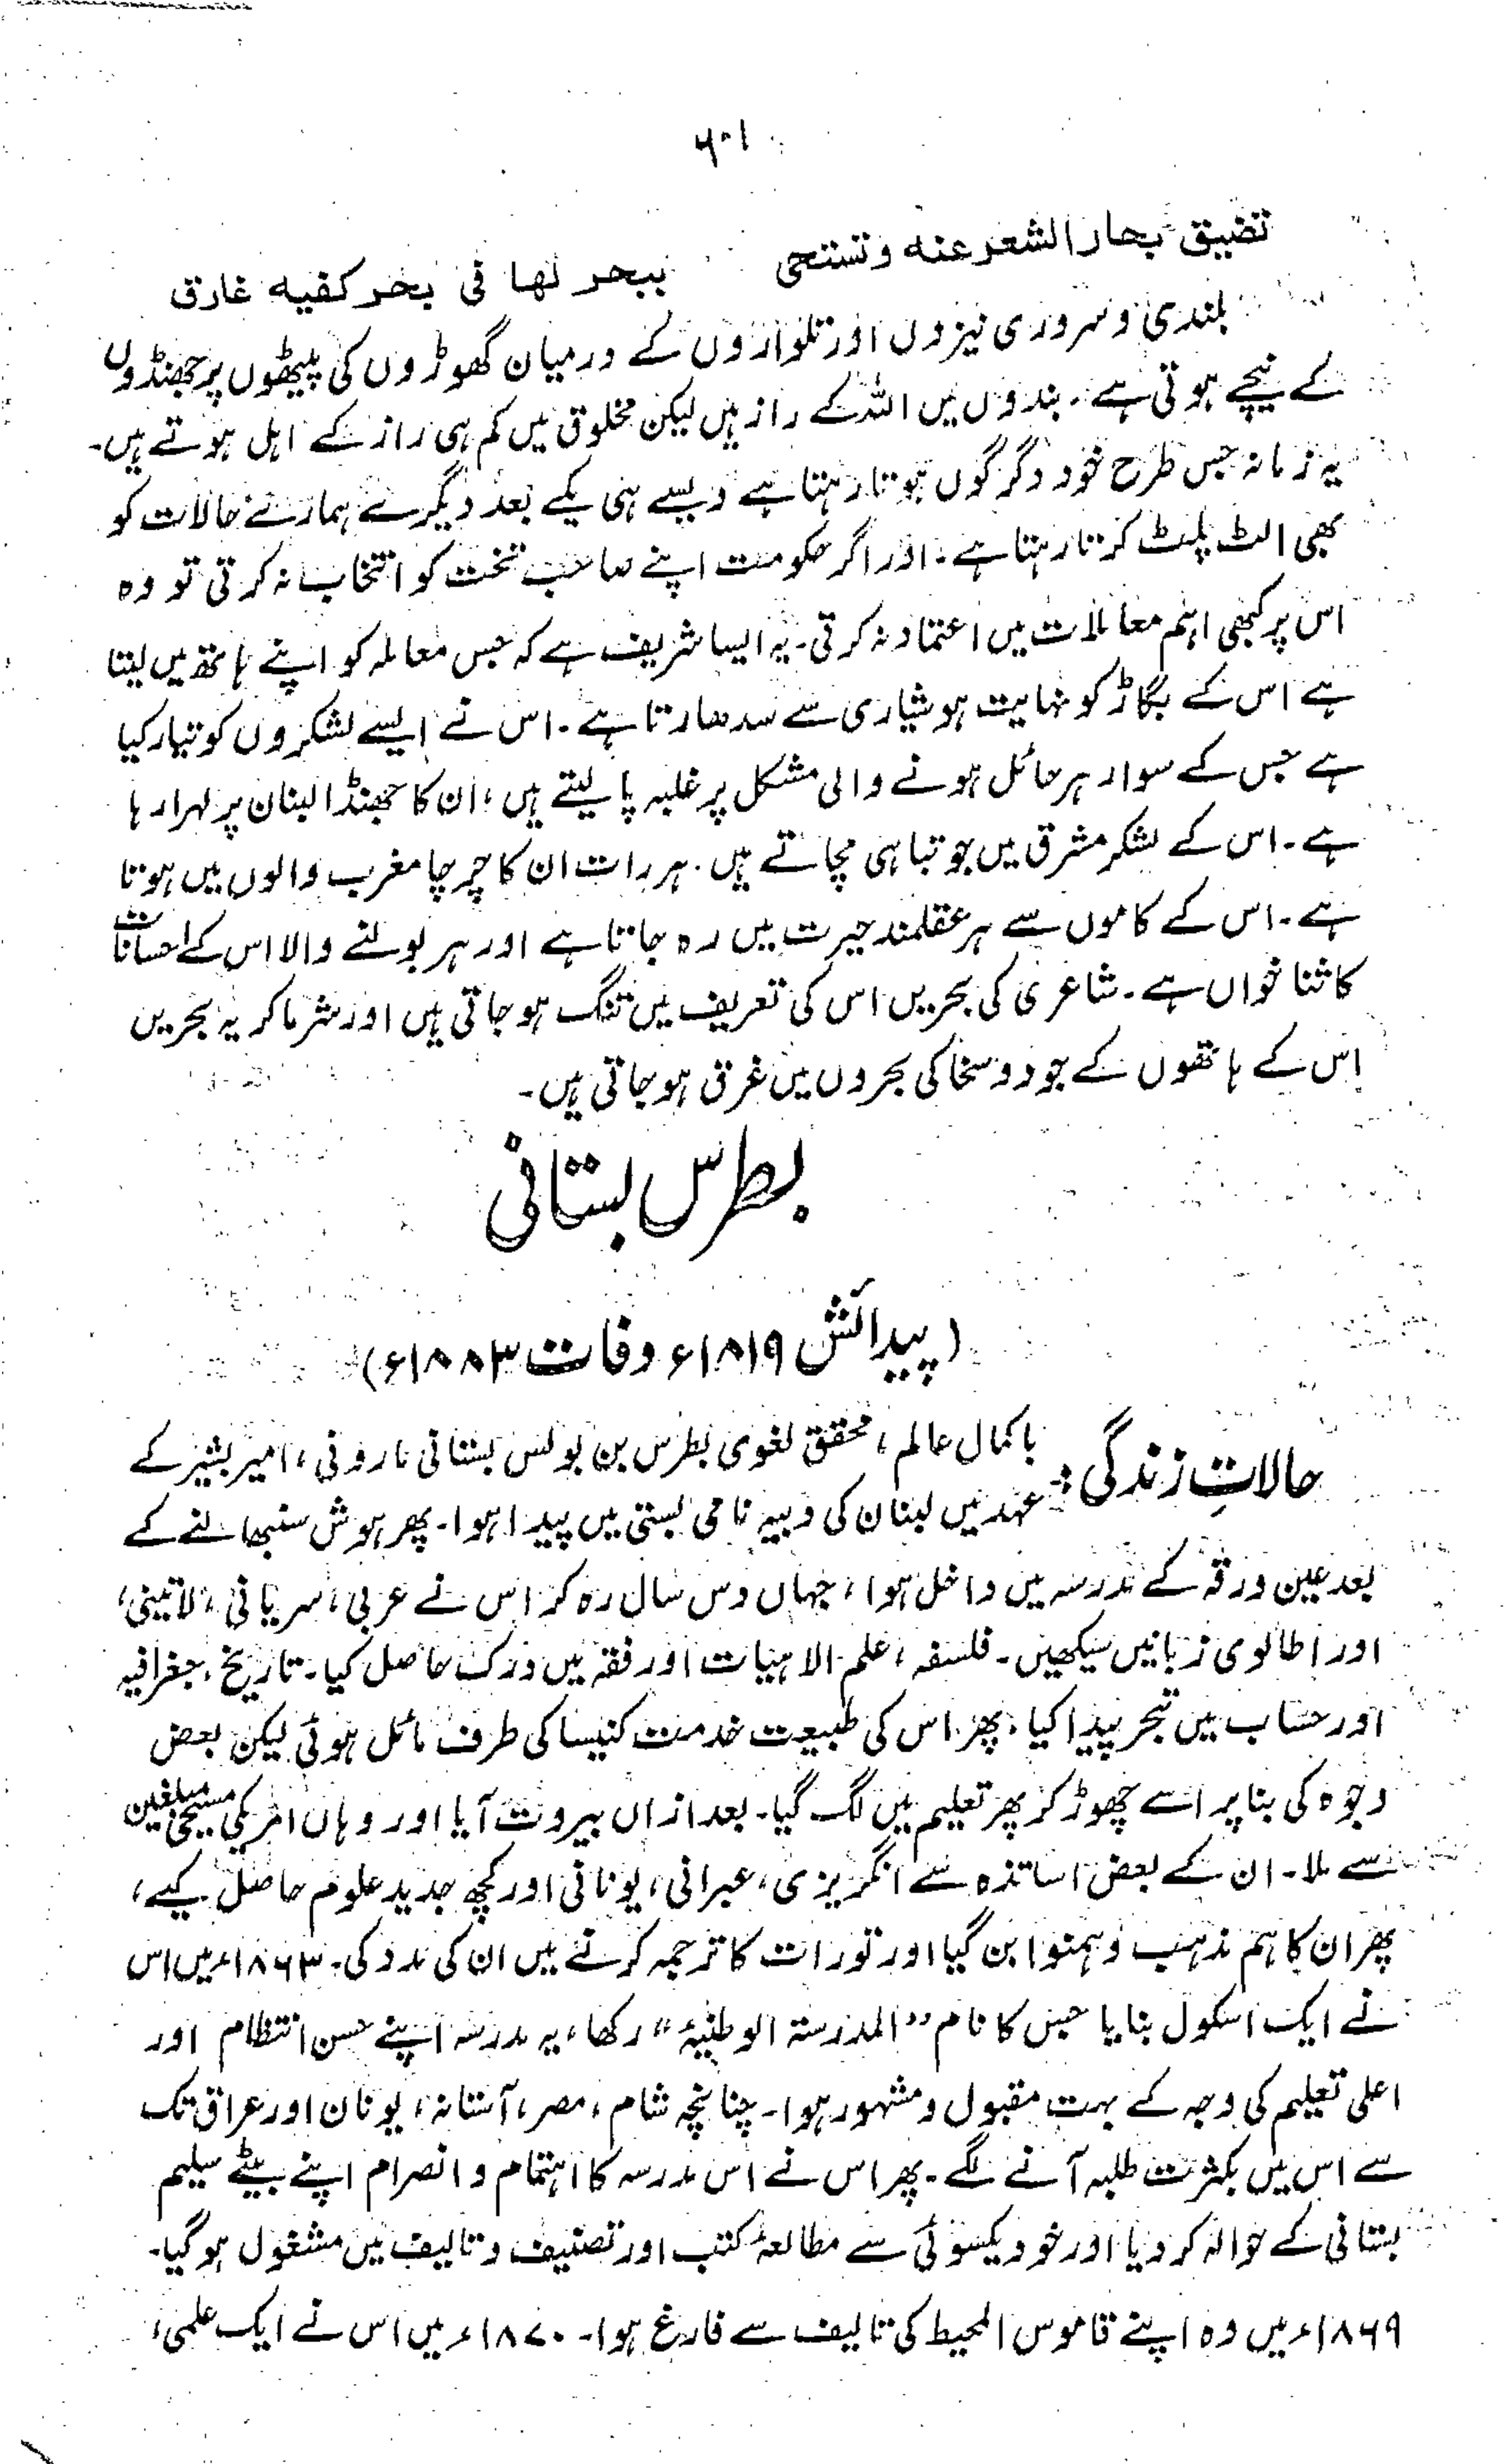 ۶۰۱
تضیق بحار الشعر عنه وتستحی ببحر لها فی بحر کفیه غارق
بلندی و سروری نیزوں اور تلواروں کے درمیان گھوڑوں کی پیٹھوں پر جھنڈوں
کے نیچے ہوتی ہے۔ بندوں میں اللہ کے راز ہیں لیکن مخلوق میں کم ہی راز کے اہل ہوتے ہیں۔
یہ زمانہ جس طرح خود دگرگوں ہوتا رہتا ہے ویسے ہی یکے بعد دیگرے ہمارے حالات کو
بھی الٹ پلٹ کرتا رہتا ہے۔ اور اگر حکومت اپنے صاحب تخت کو انتخاب نہ کرتی تو وہ
اس پر کبھی اہم معاملات میں اعتماد نہ کرتی۔ یہ ایسا شریف ہے کہ جس معاملہ کو اپنے ہاتھ میں لیتا
ہے اس کے بگاڑ کو نہایت ہوشیاری سے سدھارتا ہے۔ اس نے ایسے لشکروں کو تیار کیا
ہے جس کے سوار ہر حائل ہونے والی مشکل پر غلبہ پا لیتے ہیں، ان کا جھنڈا لبنان پر لہرا رہا
ہے۔ اس کے لشکر مشرق میں جو تباہی مچاتے ہیں۔ ہر رات ان کا چرچا مغرب والوں میں ہوتا
ہے۔ اس کے کاموں سے ہر عقلمند حیرت میں رہ جاتا ہے اور ہر بولنے والا اس کے احسانات
کا ثنا خواں ہے۔ شاعری کی بحریں اس کی تعریف میں تنگ ہو جاتی ہیں اور شرما کر یہ بحریں
اس کے ہاتھوں کے جود و سخا کی بحروں میں غرق ہو جاتی ہیں۔
بطرس بستانی
(پیدائش ۱۸۱۹ء وفات ۱۸۸۳ء)
حالاتِ زندگی: باکمال عالم، محقق لغوی بطرس بن بولس بستانی مارونی، امیر بشیر کے
عہد میں لبنان کی دبیہ نامی بستی میں پیدا ہوا۔ پھر ہوش سنبھالنے کے
بعد عین ورقہ کے مدرسہ میں داخل ہوا، جہاں دس سال رہ کر اس نے عربی، سریانی، لاتینی،
اور اطالوی زبانیں سیکھیں۔ فلسفہ، علم الاہیات اور فقہ میں درک حاصل کیا۔ تاریخ، جغرافیہ
اور حساب میں تبحر پیدا کیا۔ پھر اس کی طبیعت خدمت کنیسا کی طرف مائل ہوئی لیکن بعض
وجوہ کی بنا پر اسے چھوڑ کر پھر تعلیم میں لگ گیا۔ بعد ازاں بیروت آیا اور وہاں امریکی مسیحی مبلغین
سے ملا۔ ان کے بعض اساتذہ سے انگریزی، عبرانی، یونانی اور کچھ جدید علوم حاصل کیے،
پھر ان کا ہم مذہب و ہمنوا بن گیا اور تورات کا ترجمہ کرنے میں ان کی مدد کی۔ ۱۸۶۳ء میں اس
نے ایک اسکول بنایا جس کا نام "المدرستہ الوطنیۃ" رکھا، یہ مدرسہ اپنے حسن انتظام اور
اعلی تعلیم کی وجہ کے بہت مقبول و مشہور ہوا۔ چنانچہ شام، مصر، آستانہ، یونان اور عراق تک
سے اس میں بکثرت طلبہ آنے لگے۔ پھر اس نے اس مدرسہ کا اہتمام و انصرام اپنے بیٹے سلیم
بستانی کے حوالہ کر دیا اور خود یکسوئی سے مطالعۂ کتب اور تصنیف و تالیف میں مشغول ہو گیا۔
۱۸۶۹ء میں وہ اپنے قاموس المحیط کی تالیف سے فارغ ہوا۔ ۱۸۷۰ء میں اس نے ایک علمی،